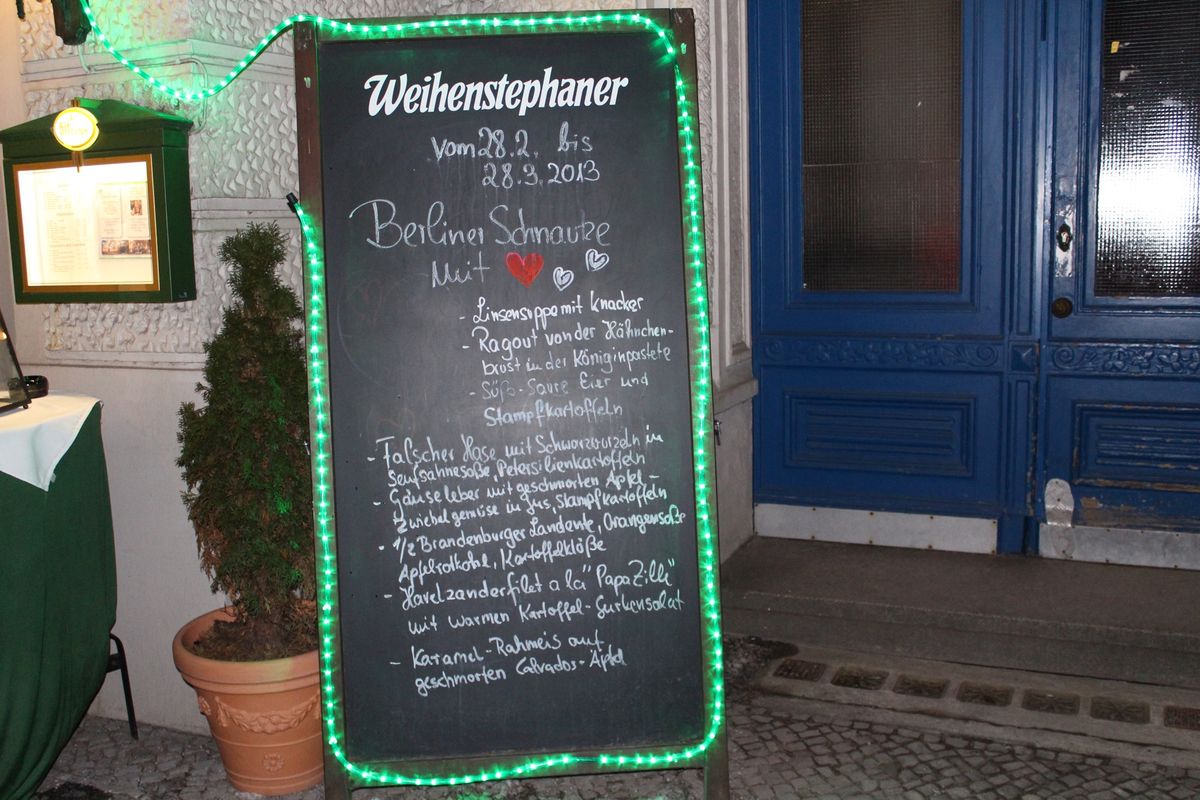 Weihenstephaner
vom 28.2. bis
28.3.2013
Berliner Schnauze
mit
- Linsensuppe mit Knacker
- Ragout von der Hähnchen-
brust in der Königinpastete
- Süß-Saure Eier und
Stampfkartoffeln
- Falscher Hase mit Schwarzwurzeln in
Senfsahnesoße, Petersilienkartoffeln
- Gänseleber mit geschmorten Apfel-
Zwiebelgemüse in Jus, Stampfkartoffeln
- 1/2 Brandenburger Landente, Orangensoße
Apfelrotkohl, Kartoffelklöße
- Havelzanderfilet a la "Papa Zille"
mit warmen Kartoffel-Gurkensalat
- Karamel-Rahmeis auf
geschmorten Calvados-Äpfel